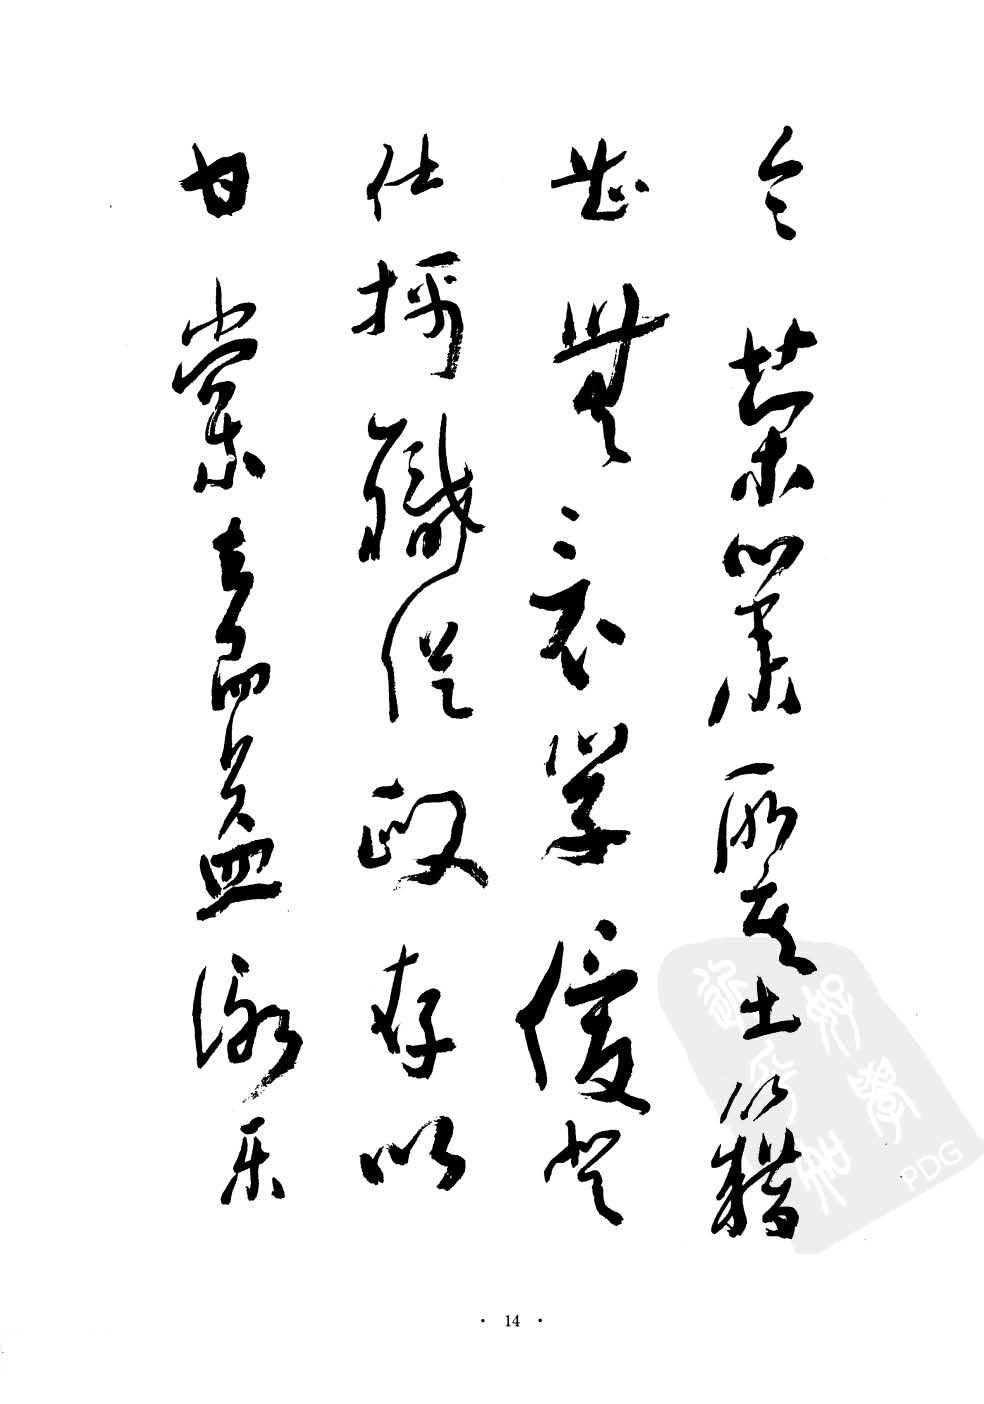 令荣業所基籍
甚無竟学優登
仕攝職從政存以
甘棠去而益詠乐
· 14 ·
PDG